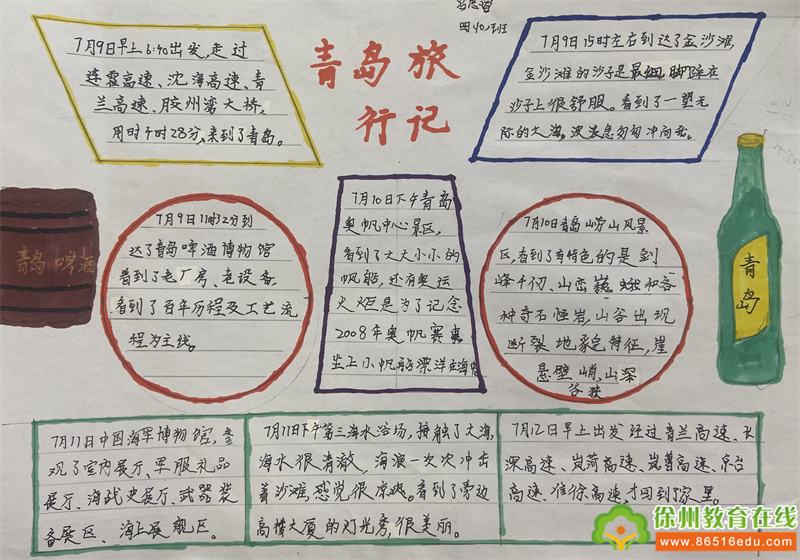 冯思哲
四(10)班
青岛旅
行记
7月9日早上6:40出发,走过
连霍高速、沈海高速、青
兰高速、胶州湾大桥,
用时4时28分,来到了青岛。
7月9日15时左右到达了金沙滩,
金沙滩的沙子是最细,脚踩在
沙子上很舒服。看到了一望无
际的大海。波浪忽匆匆冲向我。
青岛啤酒
7月9日11时32分到
达了青岛啤酒博物馆
看到了老厂房、老设备,
看到了百年历程及工艺流
程为主线。
7月10日下午青岛
奥帆中心景区,
看到了大大小小的
帆船,还有奥运
火炬是为了记念
2008年奥帆赛事
坐上小帆船漂洋在海中
7月10日青岛崂山风景
区,看到了有特色的是剑
峰千仞、山峦巍峨和各
种奇石怪岩,山谷出现
断裂地貌特征,崖
悬壁峭,山深
谷狭
青岛
7月11日中国海军博物馆,参
观了室内展厅、军服礼品
展厅、海战史展厅、武器装
备展区、海上展舰区。
7月11日下午第三海水浴场,接触了大海,
海水很清澈,海浪一次次冲击
着沙滩,感觉很凉爽。看到了旁边
高楼大厦的灯光秀,很美丽。
7月12日早上出发经过青兰高速、长
深高速、岚菏高速、岚曹高速、京台
高速、淮徐高速,才回到了家里。
徐州教育在线
www.86516edu.com